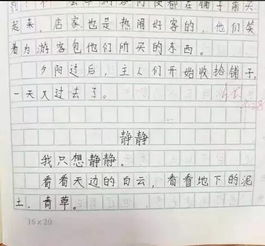 起来，店家也是热闹好客的，他们笑
着为游客包他们所买的东西。
夕阳过后，主人们开始收拾铺子，
一天又过去了。
静静
我只想静静。
看看天边的白云，看看地下的泥
土，青草。
15×20